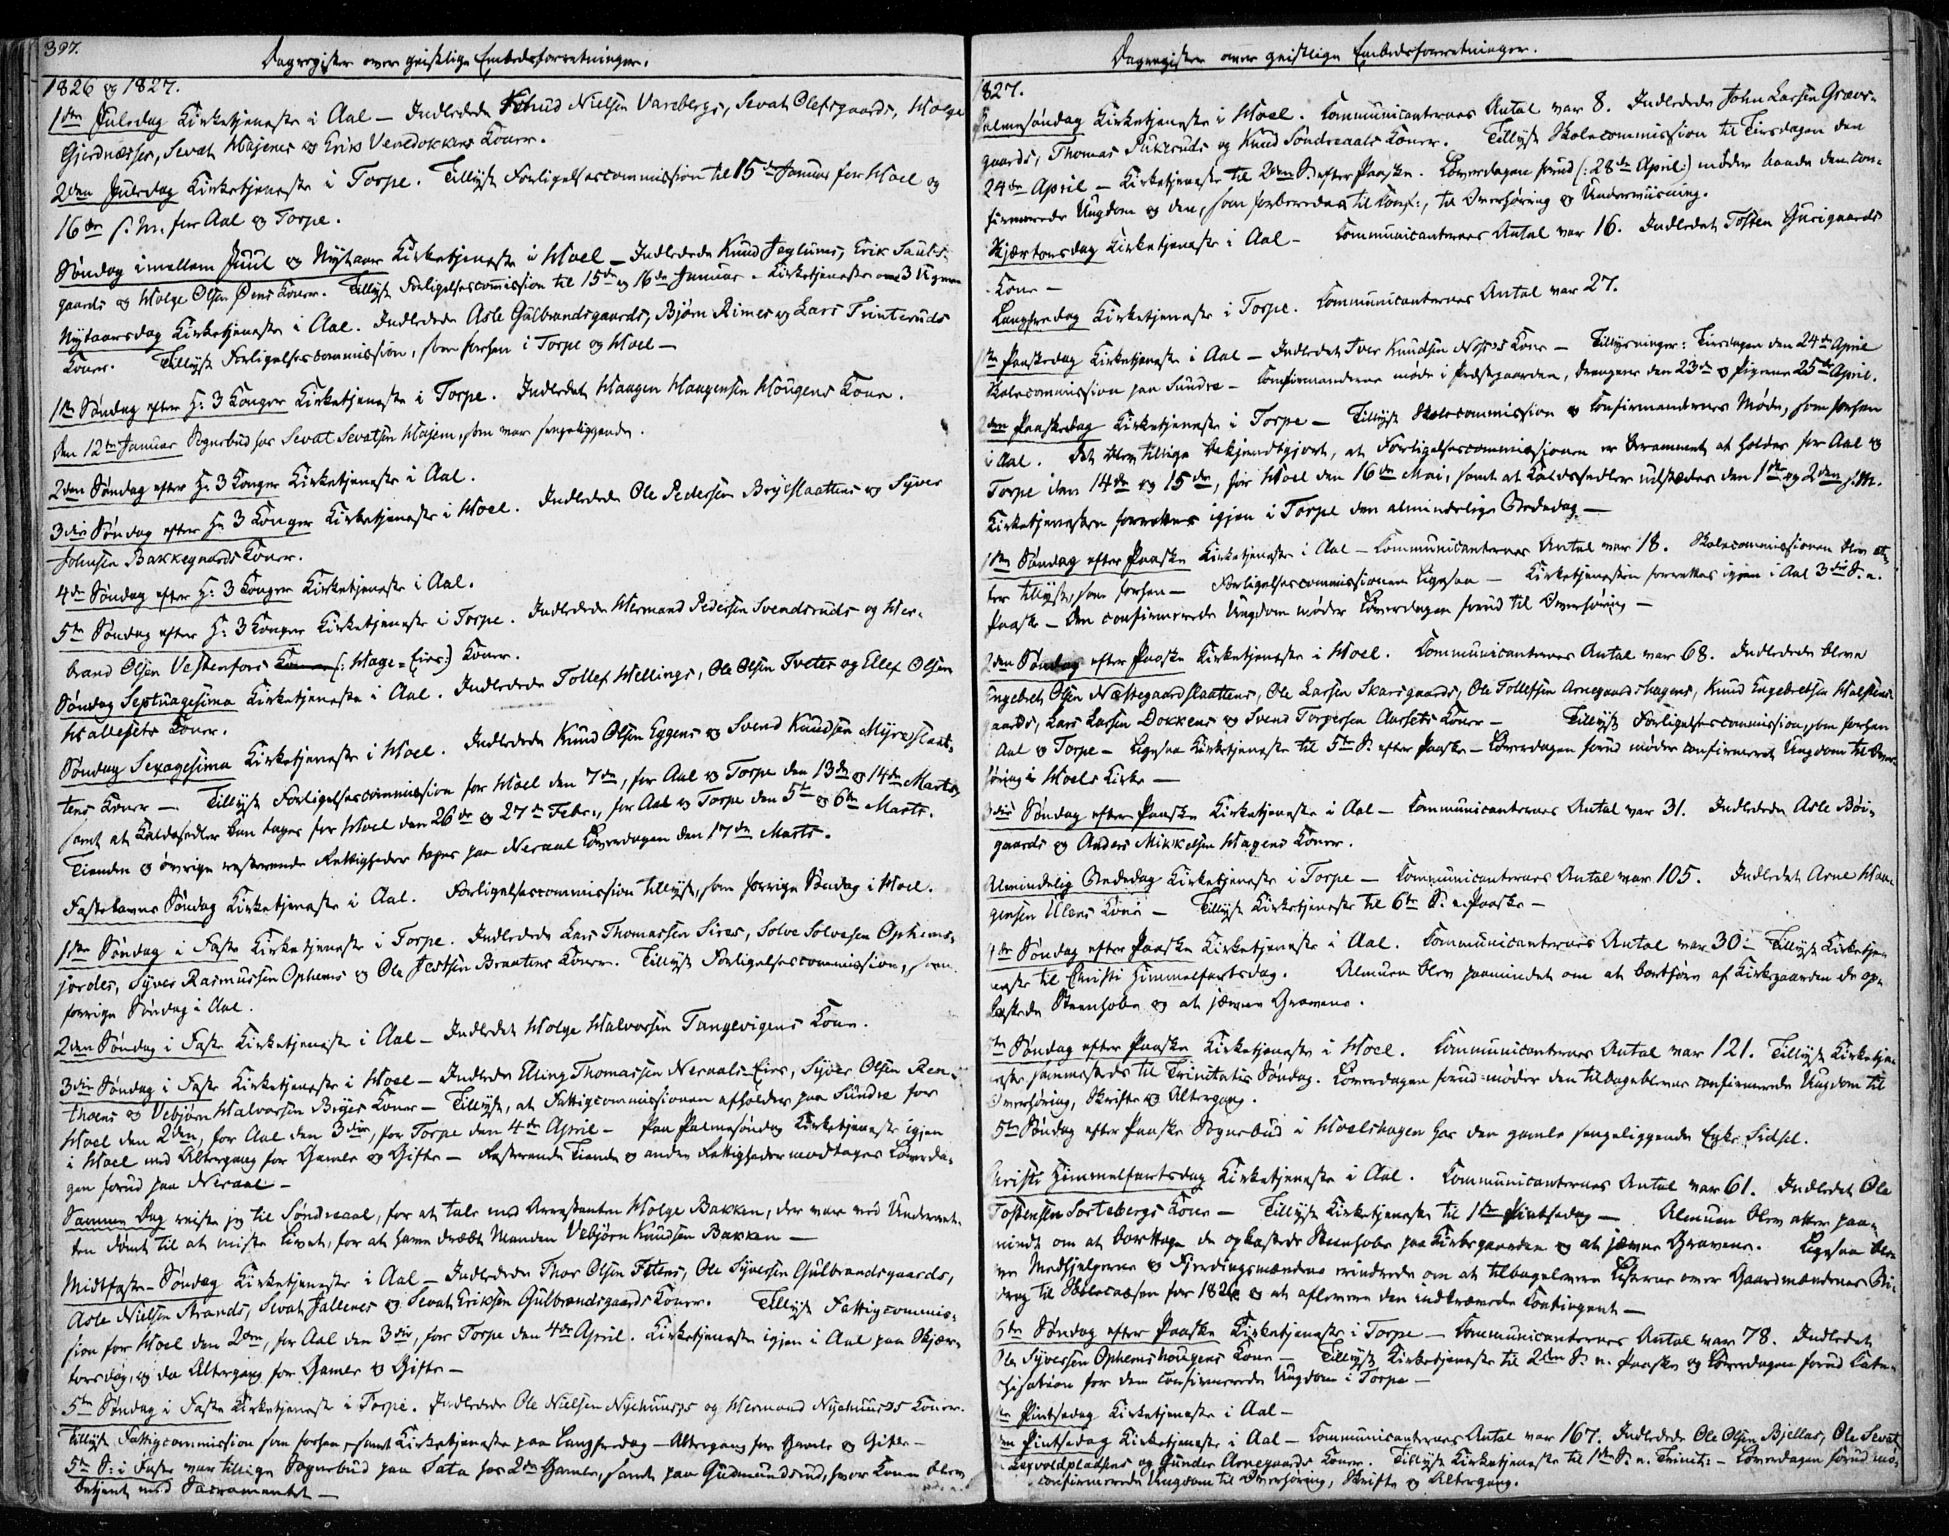 397.
Dagregister over geistlige Embedsforretninger.
1826 og 1827.
1ste Juledag Kirketjeneste i Aal — Indledede Knud Nielsen Varebergs, Sevat Olefsgaards, Holge
Gjerdnæsses, Sevat Hajems og Erik Vevedokkens Koner.
2den Juledag Kirketjeneste i Torpe. Tillyst Forligelsescommission til 15de Januar for Hoel og
16de s. M. for Aal og Torpe.
Søndag imellem Juul og Nytaar Kirketjeneste i Hoel — Indledede Knud Jeglums, Erik
gaards og Holge Olsen Øens Koner. Tillyst Forligelsescommission til 15de og 16de Januar — Kirketjeneste om 3 Uger
Nytaarsdag Kirketjeneste i Aal. Indledede Asle Gulbrandsgaards, Bjørn Rimes og Lars Trinteruds
Koner. Tillyst Forligelsescommission, som forhen i Torpe og Hoel —
1ste Søndag efter H: 3 Konger Kirketjeneste i Torpe. Indledet Haagen Haagensen Hougens Kone.
Den 12te Januar Sognebud hos Sevat Sevatsen Hajem, som var sengeliggende.
2den Søndag efter H: 3 Konger Kirketjeneste i Aal.
3die Søndag efter H: 3 Konger Kirketjeneste i Hoel. Indledede Ole Pedersen Bryeslaattens og Syver
Johnsen Bakkegaards Koner.
4de Søndag efter H: 3 Konger Kirketjeneste i Aal.
5te Søndag efter H: 3 Konger Kirketjeneste i Torpe. Indledede Hermand Pedersen Svendsruds og Her-
brand Olsen Vestenfors (: Hage-Eies:) Koner.
Søndag Septuagesima Kirketjeneste i Aal. Indledede Tollef Hellings, Ole Olsen Tvetes og Ellef Olsen
Hallesets Koner.
Søndag Sexagesima Kirketjeneste i Hoel. Indledede Knud Olsen Eggens og Svend Knudsen Myreslaat-
tens Koner — Tillyst Forligelsescommission for Hoel den 7de, for Aal og Torpe den 13de og 14de Marts,
samt at Kaldssedler kan tages for Hoel den 26de og 27de Febr., for Aal og Torpe den 5te og 6te Marts.
Tienden og øvrige resterende Rettigheder tages paa Neraal Løverdagen den 17de Marts.
Fastelavns Søndag Kirketjeneste i Aal. Forligelsescommission tillyst, som forrige Søndag i Hoel.
1ste Søndag i Faste Kirketjeneste i Torpe. Indledede Lars Thomassen Sires, Solve Solvesen Ophems-
jordes, Syver Rasmussen Ophems og Ole Jestsen Braatens Koner. Tillyst Forligelsescommission, som
forrige Søndag i Aal.
2den Søndag i Faste Kirketjeneste i Aal — Indledet Holge Halvorsen Tangevigens Kone.
3die Søndag i Faste Kirketjeneste i Hoel — Indledede Elling Thomassen Neraals-Eies, Syver Olsen Ren-
thoens og Vebjørn Halvorsen Bryes Koner — Tillyst, at Fattigcommissionen afholdes paa Sundre for
Hoel den 2den, for Aal den 3die, for Torpe den 4de April — Paa Palmesøndag Kirketjeneste igjen
i Hoel med Altergang for Gamle og Gifte — Resterende Tiende og anden Rettigheder modtages Løverda-
gen forud paa Neraal —
Samme Dag reiste jeg til Søndreaal, for at tale med Arrestanten Holge Bakken, der var ved Underret-
ten dømt til at miste Livet, for at have dræbt Manden Vebjørn Knudsen Bakken —
Midtfaste-Søndag Kirketjeneste i Aal — Indledede Thor Olsen Fetens, Ole Syversen Gulbrandsgaards,
Asle Nielsen Strands, Sevat Jallenes og Sevat Eriksen Gulbrandsgaards Koner. Tillyst Fattigcommis-
sion for Hoel den 2den, for Aal den 3die, for Torpe den 4de April. Kirketjeneste igjen i Aal paa Skjær-
torsdag, og da Altergang for Gamle og Gifte —
5te Søndag i Faste Kirketjeneste i Torpe. Indledede Ole Nielsen Nyehuuses og Hermand Nyehuuses Koner.
Tillyst Fattigcommission som forhen, samt Kirketjeneste paa Langfredag — Altergang for Gamle og Gifte —
5te S: i Faste var tillige Sognebud paa Sata hos 2de Gamle, samt paa Gudmundsrud, hvor Konen blev
betjent med Sacramentet —
Dagregister over geistlige Embedsforretninger.
1827.
Palmesøndag Kirketjeneste i Hoel. Communicanternes Antal var 8. Indledede John Larsen Græs-
gaards, Thomas og Knud Søndreaals Koner. Tillyst Skolecommission til Tirsdagen den
24de April — Kirketjeneste til 2den S. efter Paaske. Løverdagen forud (: 28de April:) møder baade den con-
firmerede Ungdom og den, som forberedes til Conf:, til Overhøring og Underviisning.
Skjærtorsdag Kirketjeneste i Aal — Communicanternes Antal var 16. Indledet Tosten Gurigaards
Kone —
Langfredag Kirketjeneste i Torpe. Communicanternes Antal var 27.
1ste Paaskedag Kirketjeneste i Aal — Indledet Iver Knudsen Noss Kone — Tillysninger: Tirsdagen den 24de April
Skolecommission paa Sundre — Confirmanderne møde i Præstgaarden, Drengene den 23de og Pigerne 25de April.
2den Paaskedag Kirketjeneste i Torpe — Tillyst Skolecommission og Confirmandernes Møde, som forhen
i Aal. Det blev tillige bekjendtgjort, at Forligelsescommissionen er berammet at holdes for Aal og
Torpe den 14de og 15de, for Hoel den 16de Mai, samt at Kaldssedler udstædes den 1ste og 2den s. M.
Kirketjenesten forrettes igjen i Torpe den almindelige Bededag —
1ste Søndag efter Paaske Kirketjeneste i Aal — Communicanternes Antal var 18. Skolecommissionen blev at-
ter tillyst, som forhen — Forligelsescommissionen ligesaa — Kirketjenesten forrettes igjen i Aal 3die S. e.
Paaske — Den confirmerede Ungdom møder Løverdagen forud til Overhøring —
2den Søndag efter Paaske Kirketjeneste i Hoel. Communicanternes Antal var 68. Indledede bleve
Engebret Olsen Nættegaardslaattens, Ole Larsen Skarsgaards, Ole Tollefsen Arnegaardshagens, Knud Engebretsen Halstens-
gaards, Lars Larsen Dokkens og Svend Torgersen Aarsets Koner — Tillyst Forligelsescommission, som forhen
i Aal og Torpe — Ligesaa Kirketjeneste til 5te S. efter Paaske — Løverdagen forud møder confirmeret Ungdom til Over-
høring i Hoels Kirke —
3die Søndag efter Paaske Kirketjeneste i Aal — Communicanternes Antal var 31. Indledede Asle Bøi-
gaards og Anders Mikkelsen Hagens Koner.
Almindelig Bededag Kirketjeneste i Torpe — Communicanternes Antal var 105. Indledet Arne Haa-
gensen Ulens Kone — Tillyst Kirketjeneste til 6te S. e. Paaske —
4de Søndag efter Paaske Kirketjeneste i Aal. Communicanternes Antal var 30 — Tillyst Kirketje-
neste til Christi Himmelfartsdag. Almuen blev paamindet om at bortføre af Kirkegaarden de op-
kastede Steenhobe og at jævne Gravene.
5te Søndag efter Paaske Kirketjeneste i Hoel. Communicanternes Antal var 121. Tillyst Kirketje-
neste sammesteds til Trinitatis Søndag. Løverdagen forud møder den tilbageblevne confirmerede Ungdom til
Overhøring, Skrifte og Altergang.
5te Søndag efter Paaske Sognebud i Hoelshagen hos den gamle sengeliggende Enke Sidsel.
Christi Himmelfartsdag Kirketjeneste i Aal. Communicanternes Antal var 61. Indledet Ole
Tostensen Sortebergs Kone — Tillyst Kirketjeneste til 1ste Pintsedag — Almuen blev atter paa-
mindt om at borttage de opkastede Steenhobe paa Kirkegaarden og at jævne Gravene. Ligesaa blev
Medhjelperne og Fjerdingsmændene erindrede om at tilbagelevere Listerne over Gaardmændenes Bi-
drag til Skolecassen for 1826 og at aflevere den indkrævede Contingent —
6te Søndag efter Paaske Kirketjeneste i Torpe — Communicanternes Antal var 78. Indledet
Ole Syversen Ophemshougens Kone — Tillyst Kirketjeneste til 2den S. e. Paaske og Løverdagen forud Cate-
chisation for den confirmerede Ungdom i Torpe —
1ste Pintsedag Kirketjeneste i Aal —
2den Pintsedag Kirketjeneste i Aal — Communicanternes Antal war 167. Indledede Ole Olsen Bjellas, Ole Sevat-
og Gunder Arnegaards Koner. Tillyst Kirketjeneste til 1ste S. e. Trinit: — Løverdagen forud mø-
confirmerede Ungdom til Overhøring, Skrifte og Altergang.